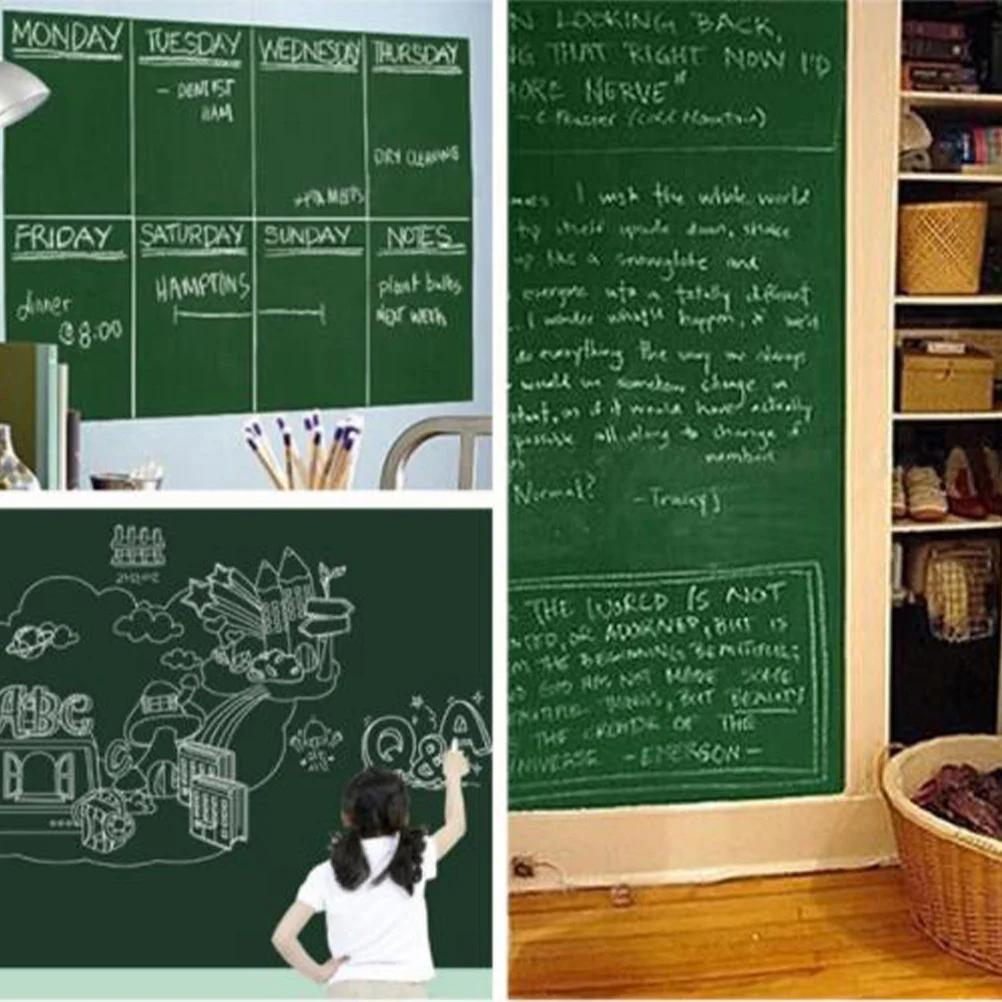 MONDAY
TUESDAY
WEDNESDAY
THURSDAY
- DENTIST
9AM
DRY CLEANING
FRIDAY
SATURDAY
SUNDAY
NOTES
dinner
@ 8:00
HAMPTONS
plant bulbs
NEXT WEEK
ABC
Q&A
N LOOKING BACK,
G THAT RIGHT NOW I'D
MORE NERVE"
- C. Frazier (Cold Mountain)
mes I wish the whole world
upside down, shake
up like a snowglobe and
everyone into a totally different
I wonder what'd happen, if we'd
do everything the way we always
would we somehow change in
that, as if it would have actually
possible all along to change
Normal? - Tracy J
THE WORLD IS NOT
TED, OR ADORNED, BUT IS
M THE BEGINNING BEAUTIFUL;
D GOD HAS NOT MADE SOME
BEAUTIFUL THINGS, BUT BEAUTY
IS THE CREATOR OF THE
UNIVERSE - EMERSON -